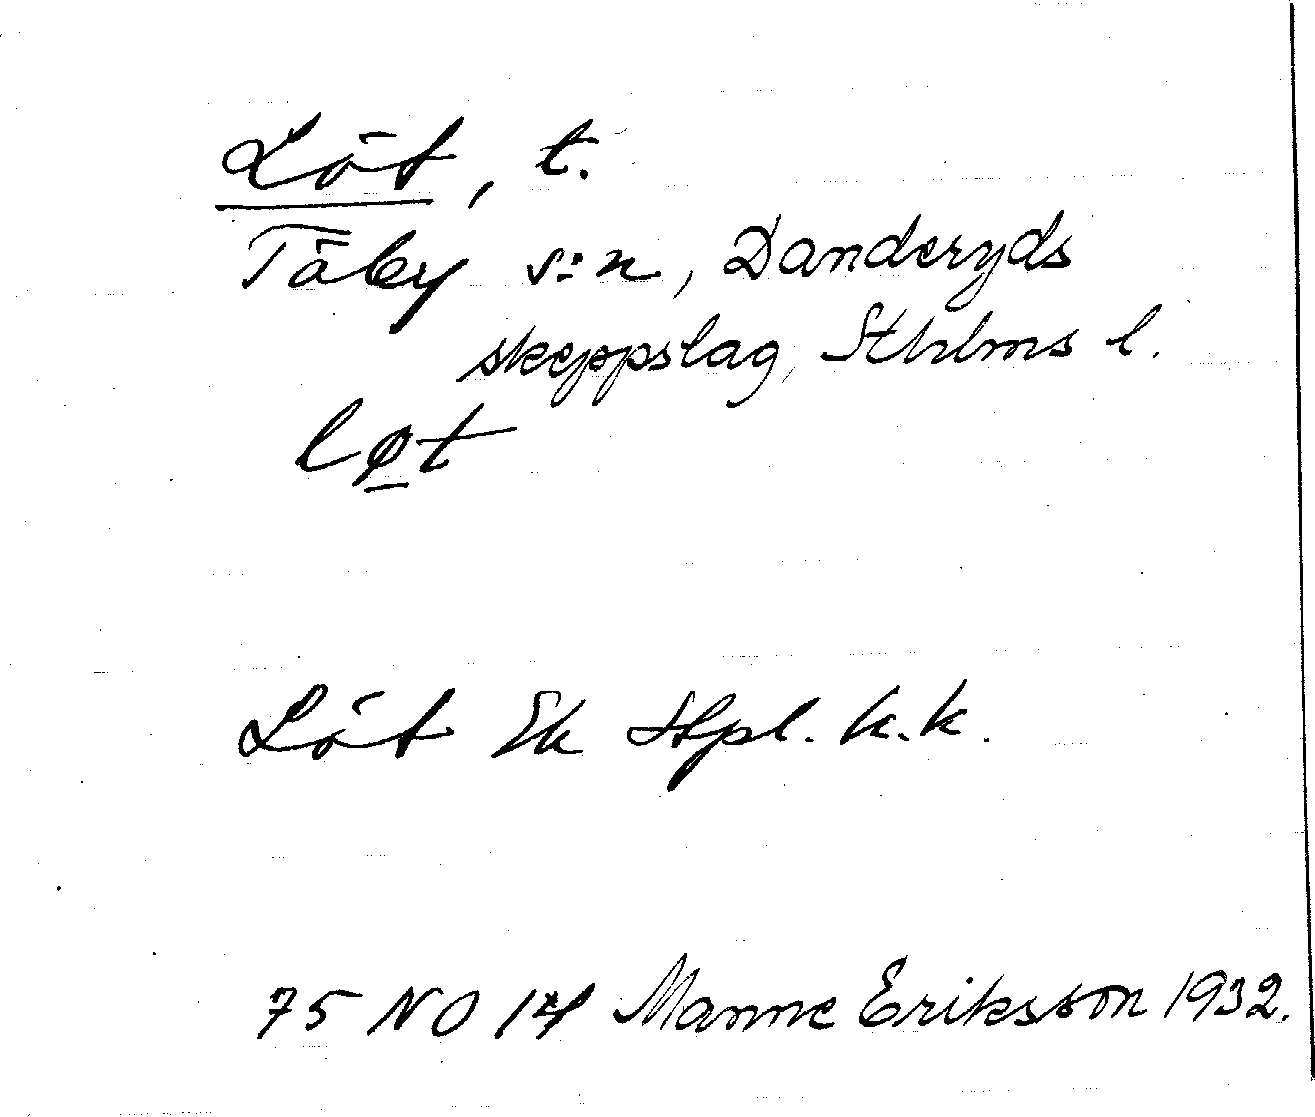 Löt, t.
Täby s:n, Danderyds
skeppslag, Sthlms l.
lø̲t
Löt Ek Stpl. k.k.
75 NO 14 Manne Eriksson 1932.